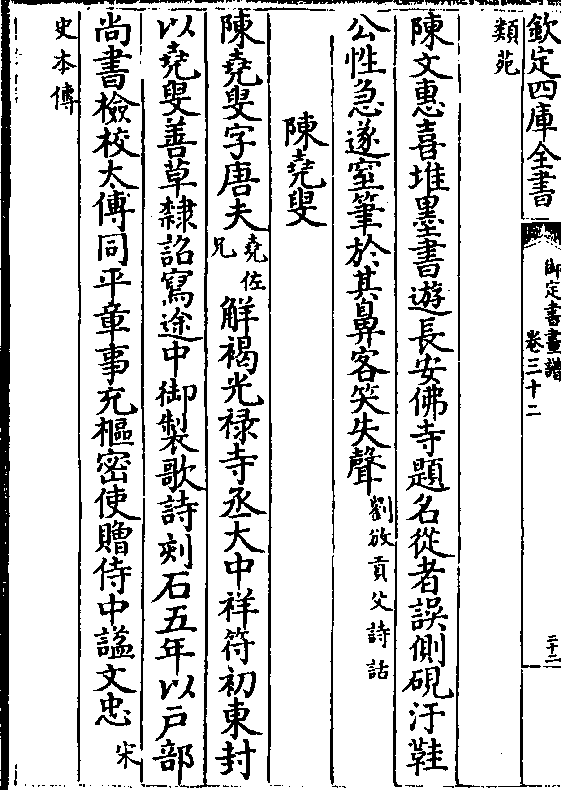 欽定四庫全書
御定書畫譜
卷三十二
二十二
類苑
陳文惠喜堆墨書遊長安佛寺題名從者誤側硯汙鞋
公性急遂窒筆於其鼻客笑失聲劉攽貢父詩話
陳堯叟
陳堯叟字唐夫堯佐兄解褐光禄寺丞大中祥符初東封
以堯叟善草隸詔寫途中御製歌詩刻石五年以戸部
尚書檢校太傅同平章事充樞密使贈侍中謚文忠宋
史本傳